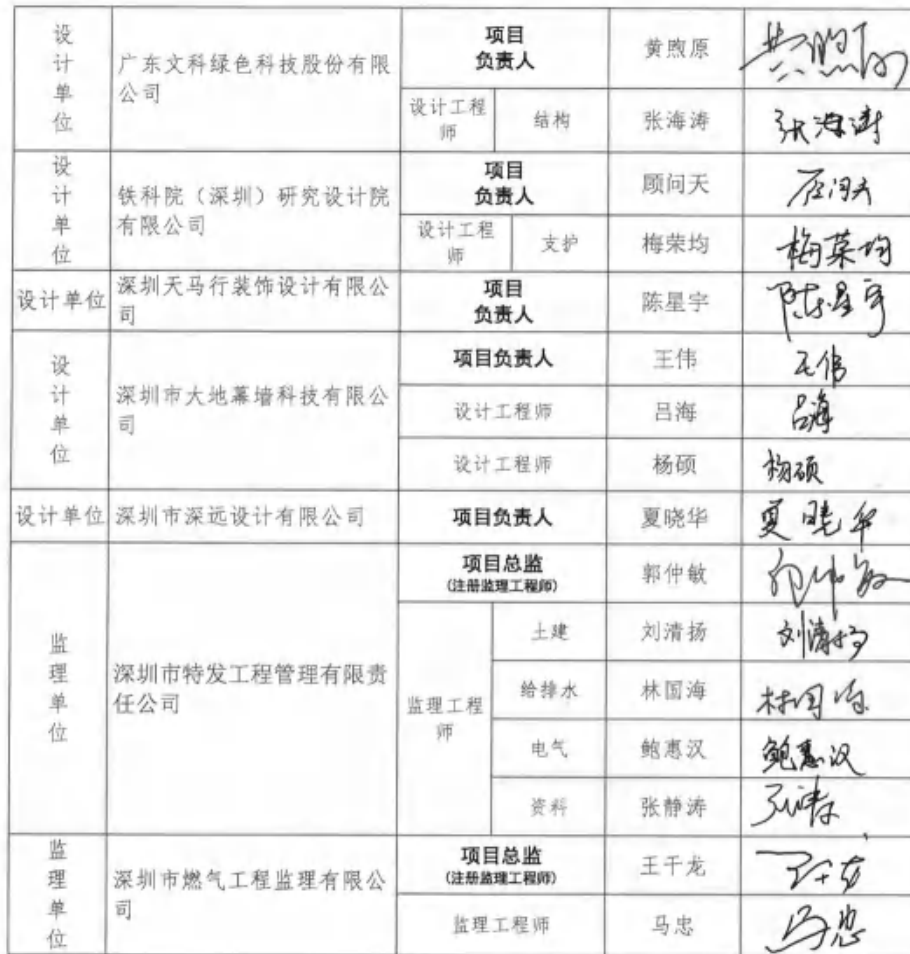 设计单位
广东文科绿色科技股份有限公司
项目负责人
黄煦原
黄煦原
设计工程师
结构
张海涛
张海涛
设计单位
铁科院（深圳）研究设计院有限公司
项目负责人
顾问天
顾问天
设计工程师
支护
梅荣均
梅荣均
设计单位
深圳天马行装饰设计有限公司
项目负责人
陈星宇
陈星宇
设计单位
深圳市大地幕墙科技有限公司
项目负责人
王伟
王伟
设计工程师
吕海
吕海
设计工程师
杨硕
杨硕
设计单位
深圳市深远设计有限公司
项目负责人
夏晓华
夏晓华
监理单位
深圳市特发工程管理有限责任公司
项目总监
(注册监理工程师)
郭仲敏
郭仲敏
监理工程师
土建
刘清扬
刘清扬
给排水
林国海
林国海
电气
鲍惠汉
鲍惠汉
资料
张静涛
监理单位
深圳市燃气工程监理有限公司
项目总监
(注册监理工程师)
王干龙
监理工程师
马忠
马忠